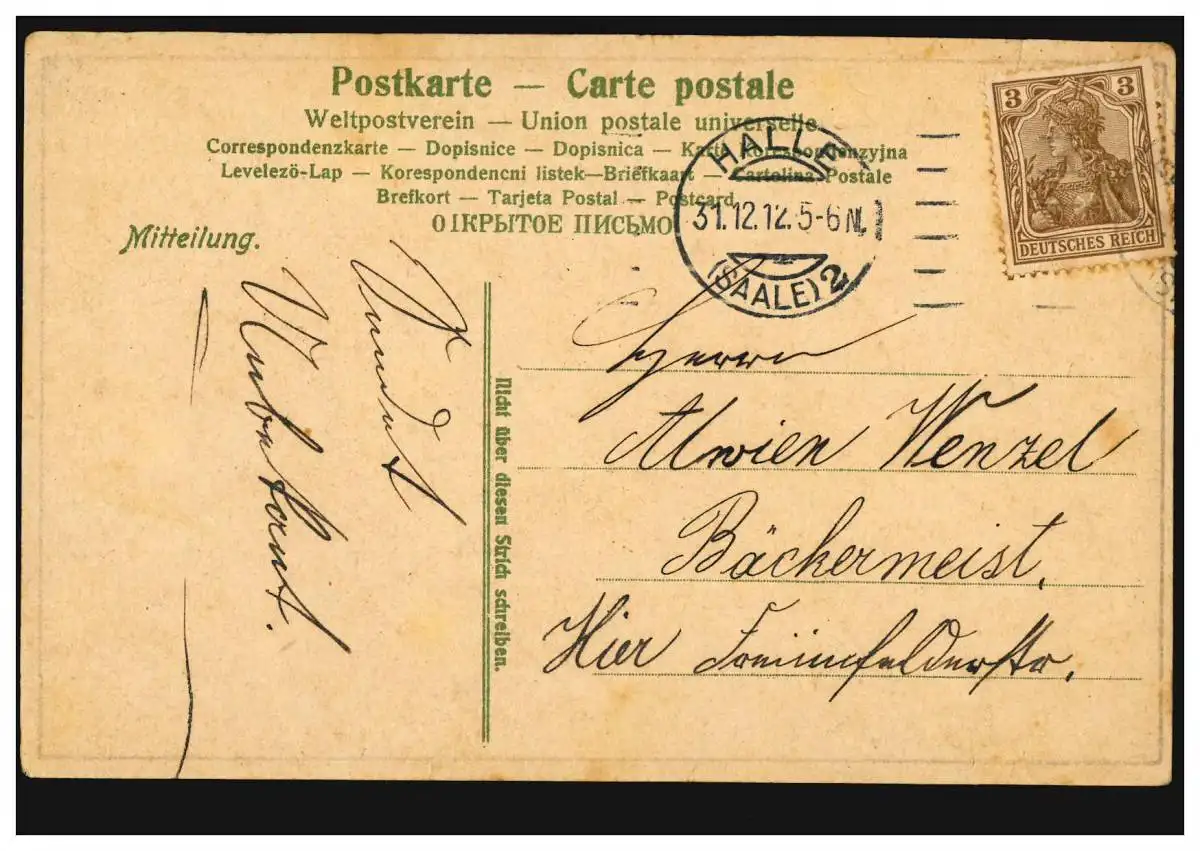 Postkarte — Carte postale
Weltpostverein — Union postale universelle
Correspondenzkarte — Dopisnice — Dopisnica — Karta korespondenzyjna
Levelezö-Lap — Korespondencni listek—Briefkaart — Cartolina Postale
Brefkort — Tarjeta Postal — Postcard
ОТКРЫТОЕ ПИСЬМО
Mitteilung.
HALLE
31.12.12. 5-6 N.
(SAALE) 2
3 3
DEUTSCHES REICH
Unbekannt.
Nicht über diesen Strich schreiben.
Herrn
Alwien Wenzel
Bäckermeist.
Hier